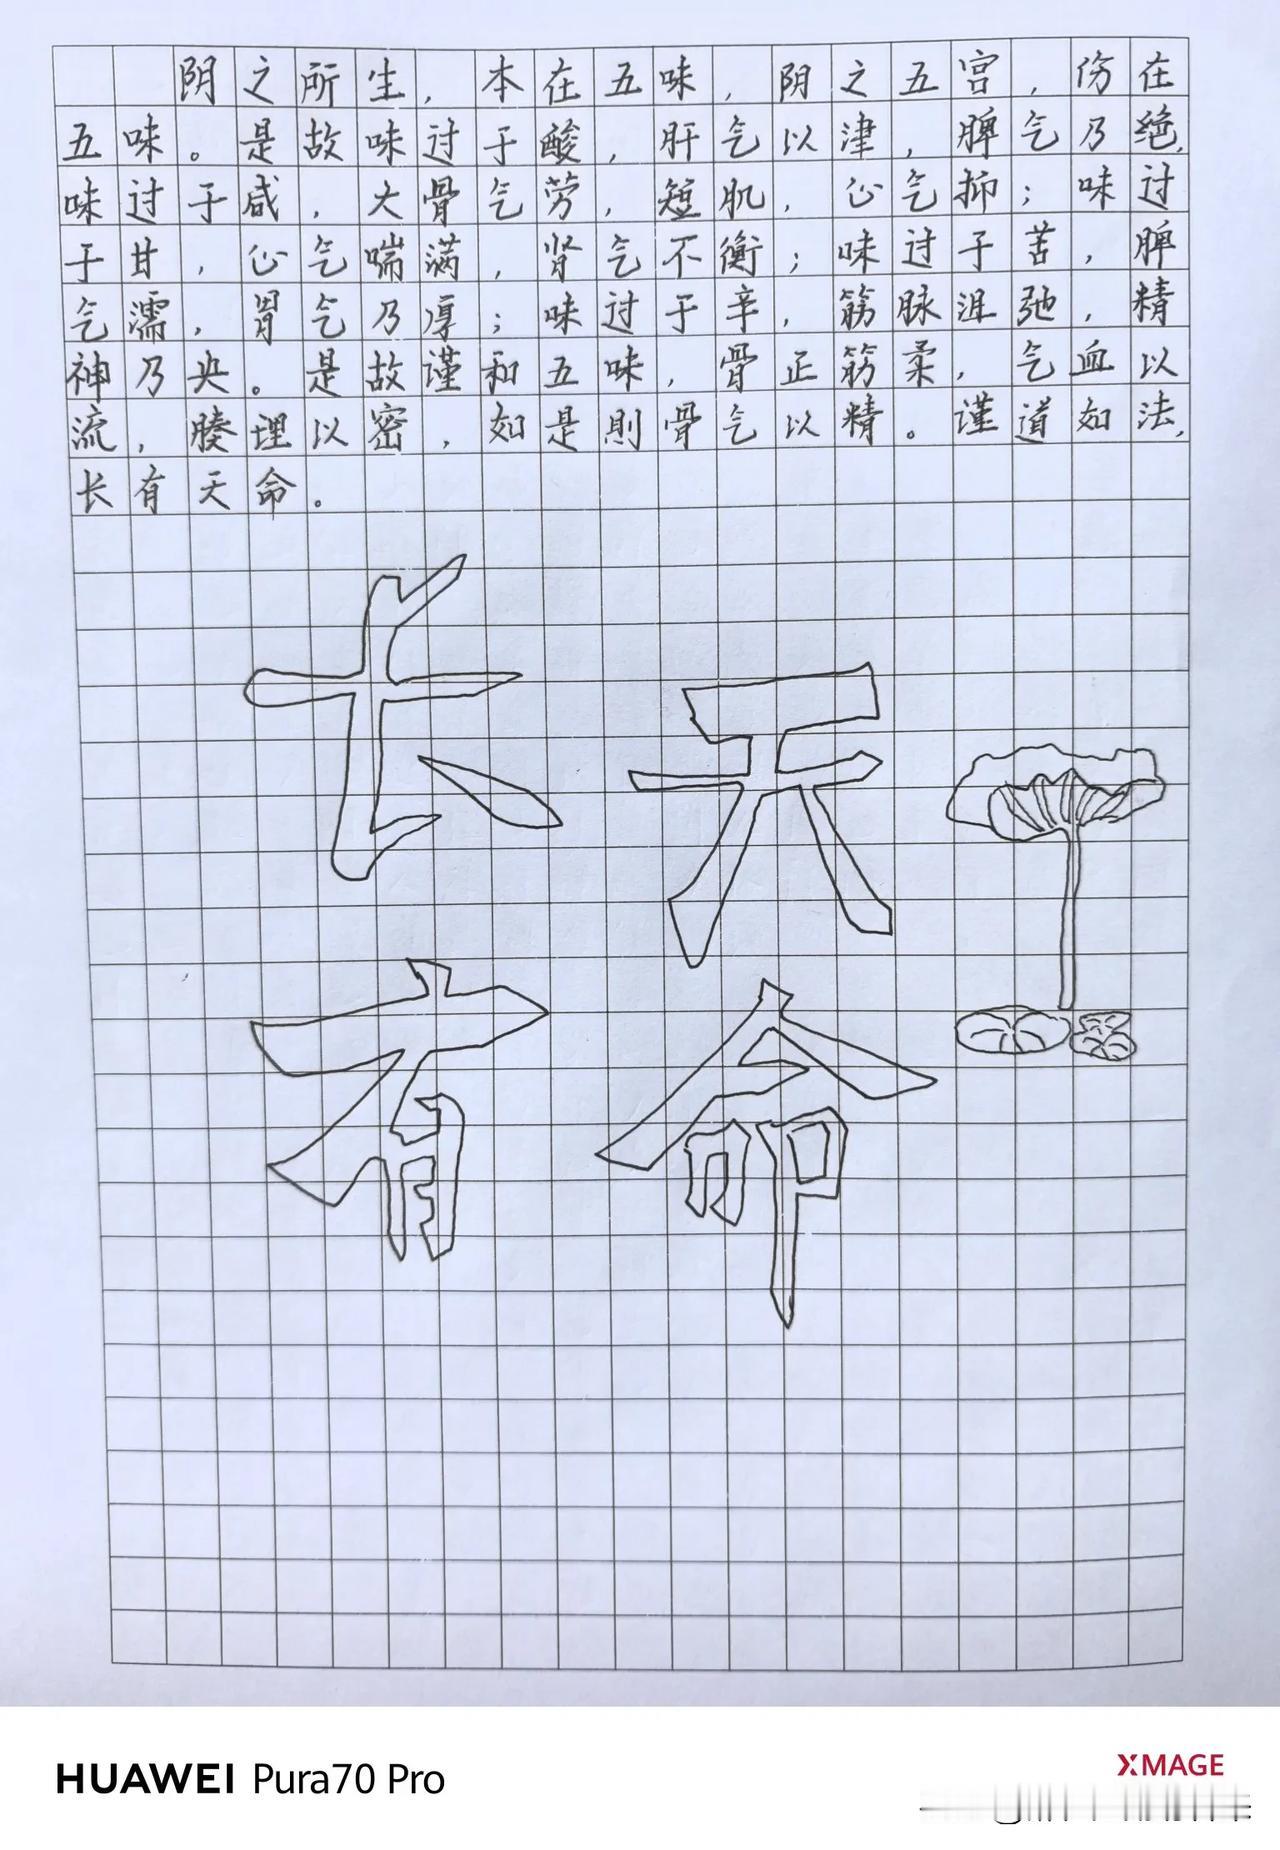 阴之所生，本在五味，阴之五宫，伤在
五味。是故味过于酸，肝气以津，脾气乃绝，
味过于咸，大骨气劳，短肌，心气抑；味过
于甘，心气喘满，肾气不衡；味过于苦，脾
气濡，胃气乃厚；味过于辛，筋脉沮弛，精
神乃央。是故谨和五味，骨正筋柔，气血以
流，腠理以密，如是则骨气以精。谨道如法，
长有天命。
长天
有命
HUAWEI Pura70 Pro
XMAGE